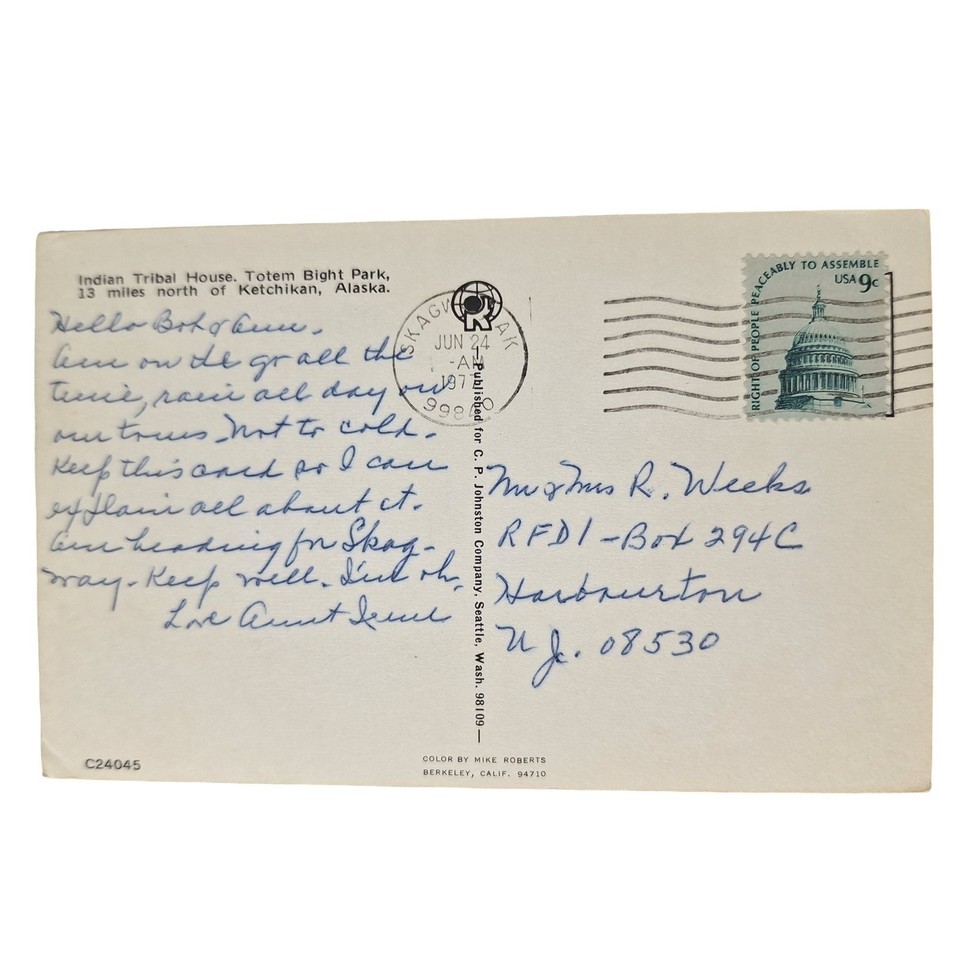 Indian Tribal House. Totem Bight Park,
13 miles north of Ketchikan, Alaska.
Hello Bob & Ann.
Am on the go all the
time, rain all day on
our tours. Not to cold.
Keep this card so I can
explain all about it.
Am heading for Skag-
way. Keep well. I'm ok.
Love Aunt Irene
C24045
SKAGWAY AK
JUN 24
AM
197
99840
R
—Published for C. P. Johnston Company, Seattle, Wash. 98109—
COLOR BY MIKE ROBERTS
BERKELEY, CALIF. 94710
RIGHT OF PEOPLE PEACEABLY TO ASSEMBLE
USA 9c
Mr & Mrs R. Weeks
RFD1 - Box 294C
Harbourton
N.J. 08530